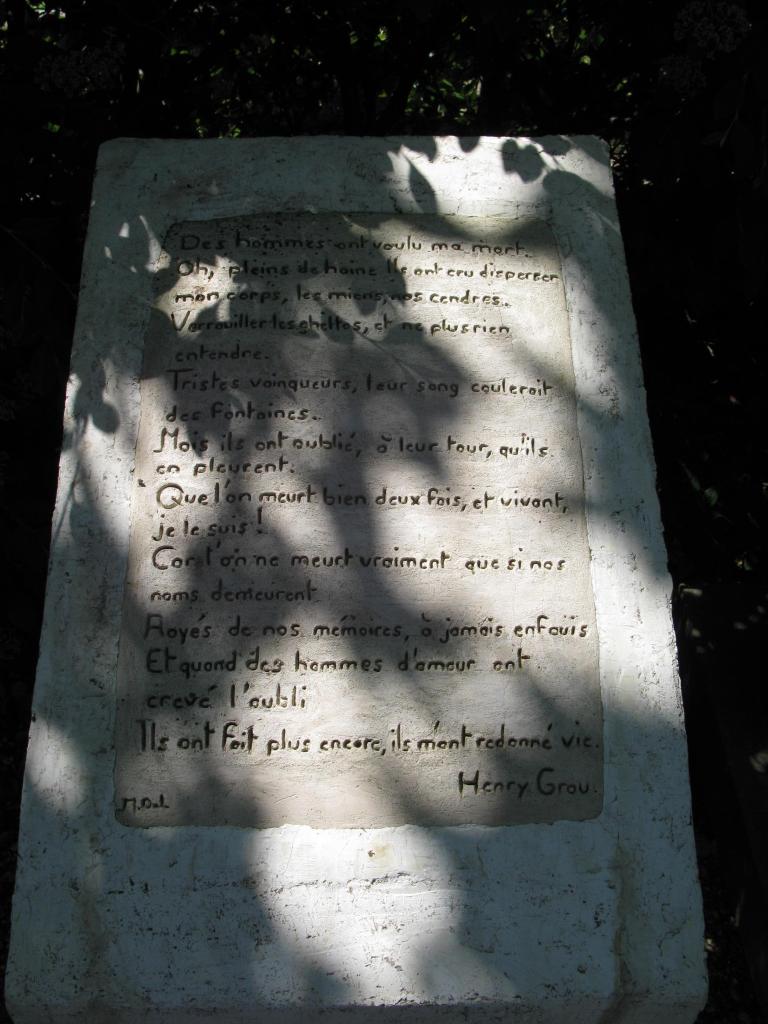 Des hommes ont voulu ma mort.
Oh, pleins de haine Ils ont cru disperser
mon corps, les miens, nos cendres.
Verrouiller les ghettos, et ne plus rien
entendre.
Tristes vainqueurs, leur sang couleroit
des fontaines.
Mais ils ont oublié, à leur tour, qu'ils
en pleurent.
Que l'on meurt bien deux fois, et vivant,
je le suis !
Car l'on ne meurt vraiment que si nos
noms demeurent
Rayés de nos mémoires, à jamais enfouis
Et quand des hommes d'amour ont
crevé l'oubli
Ils ont fait plus encore, ils m'ont redonné vie.
Henry Grou.